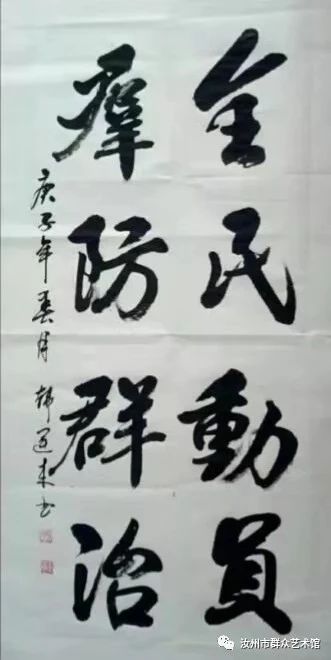 全民動員
羣防群治
庚子年春月 韩運来书
汝州市群众艺术馆